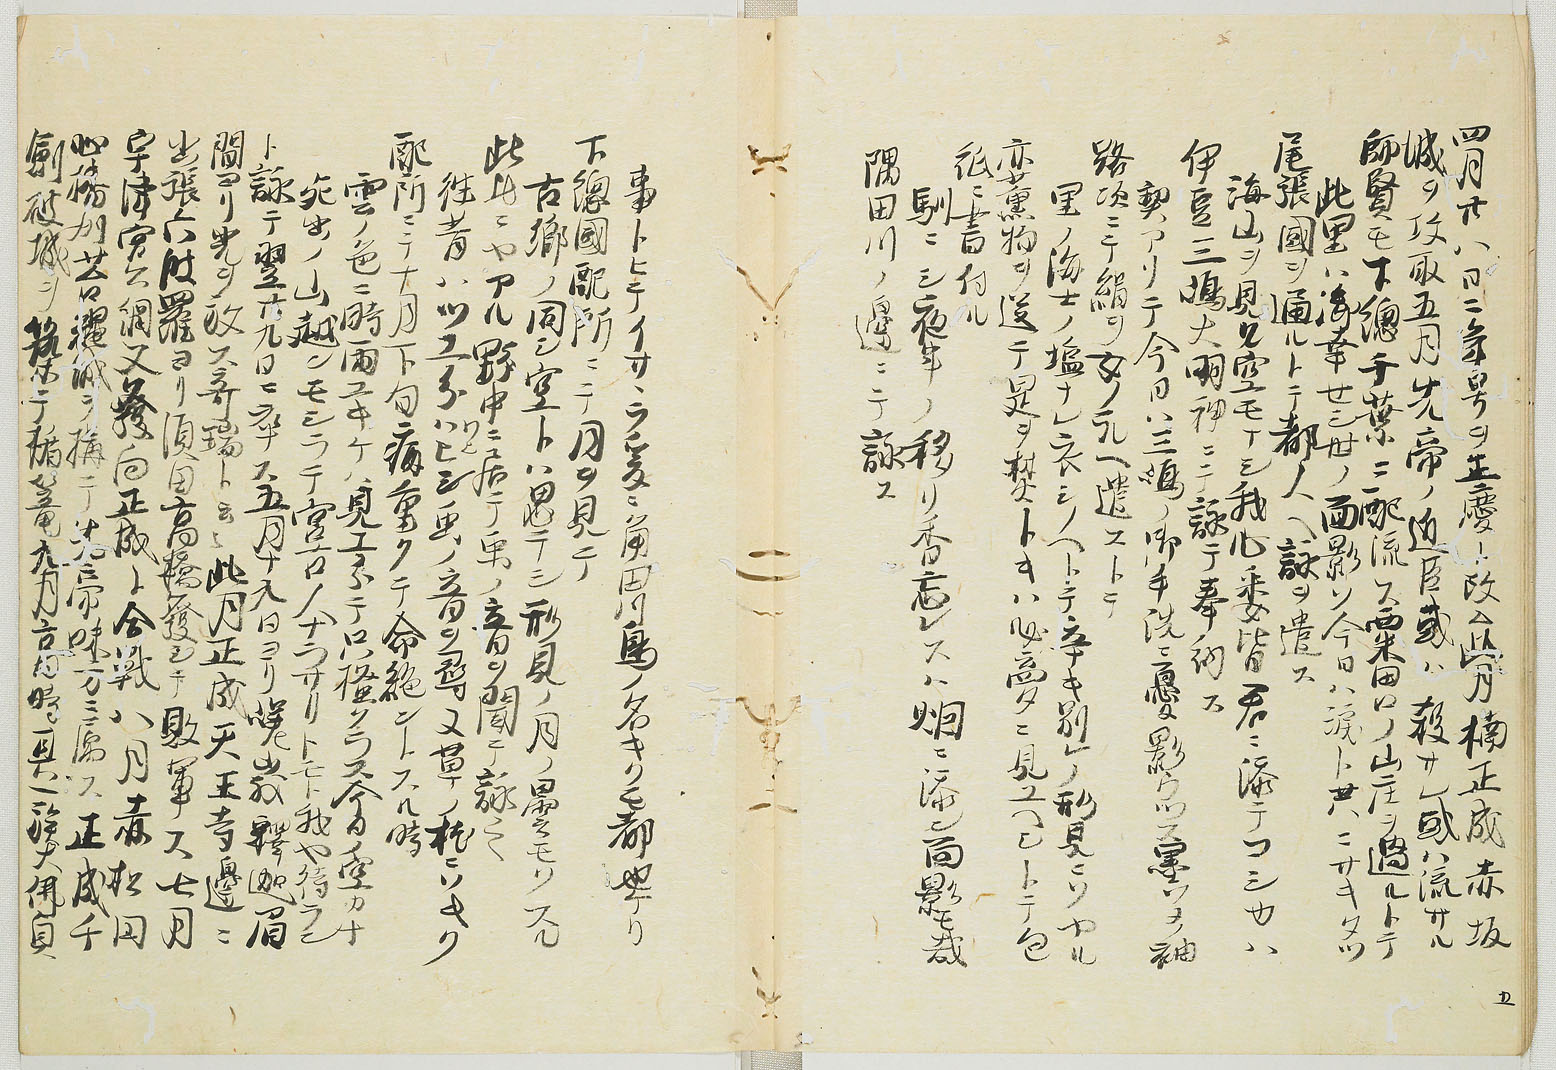 四月廿八日ニ年号ヲ正慶ト改ム此月楠正成赤坂
城ヲ攻取五月先帝ノ近臣或ハ殺サレ或ハ流サル
師賢モ下總千葉ニ配流ス粟田口ノ山庄ヲ過ルトテ
此里ハ
世ノ面影ソ今日ハ涙ト共ニサキタツ
尾張國ヲ通ルトテ都ノ人ヘ詠ヲ遣ス
海山ヲ見ル空モナシ我心
皆君ニ添テコシカハ
伊豆三嶋大明神ニテ詠テ奉納ス
契アリテ今日ハ三嶋ノ御手洗ニ憂影ウツス墨ソメノ袖
路次ニテ絹ヲ女ノ
ヘ遣ストテ
里ノ海士ノ塩ナレ衣シノヘトテ
キ別レノ形見ニソヤル
亦薫物ヲ送テ是ヲ焚トキハ必夢ニ見ユヘシトテ包
紙ニ書付ル
馴ニシ夜半ノ移リ香忘レスハ
ニ添シ面影モ哉
隅田川ノ邊ニテ詠ス
事トヒテイサヽラ爰ニ角田川鳥ノ名キクモ都也ケリ
下總國配所ニテ月ヲ見テ
古郷ノ同シ空トハ思テシ形見ノ月ノ曇モソスル
此比ニヤアル野中ニ居テ虫ノ音ヲ聞テ詠シ
往昔ハツユ分ハヒシ虫ノ音ヲ尋又草ノ枕ニソキク
配所ニテ十月下旬病重クテ命絶ントスル時
雲ノ色ニ時雨ユキケハ見エ分テ只
クラス今日ノ空カナ
死出ノ山越ンモシラテ宮古人ナヲサリトモト我ヤ待ラン
ト詠テ翌廿九日ニ卒ス五月十九日ヨリ嵯峨釋迦眉
間ヨリ光ヲ放ス奇瑞ト云々此月正成天王寺邊ニ
出張六波羅ヨリ須田高橋發シテ敗軍ス七月
宇津宮公綱又發向正成ト合戦八月赤松円
心播州苔縄城ヲ構テ先帝味方ニ属ス正成千
劔破城ヲ築テ楯篭九月高時
大佛貞
五